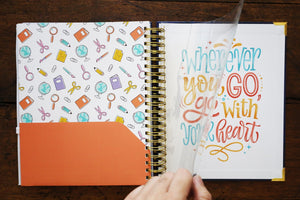 Wherever
you GO,
go with
your heart